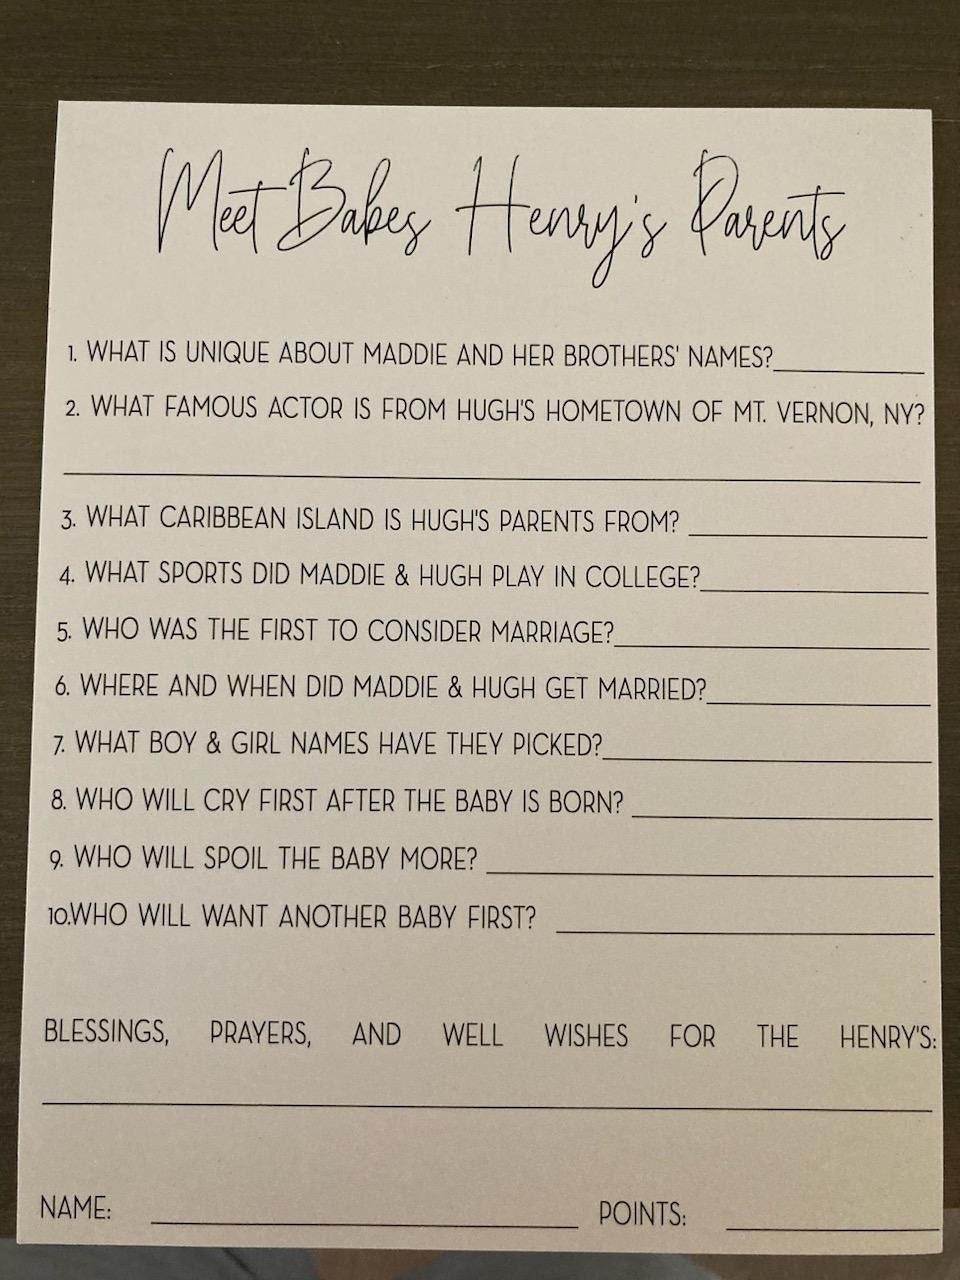 Meet Babes Henry's Parents
1. WHAT IS UNIQUE ABOUT MADDIE AND HER BROTHERS' NAMES?
2. WHAT FAMOUS ACTOR IS FROM HUGH'S HOMETOWN OF MT. VERNON, NY?
3. WHAT CARIBBEAN ISLAND IS HUGH'S PARENTS FROM?
4. WHAT SPORTS DID MADDIE & HUGH PLAY IN COLLEGE?
5. WHO WAS THE FIRST TO CONSIDER MARRIAGE?
6. WHERE AND WHEN DID MADDIE & HUGH GET MARRIED?
7. WHAT BOY & GIRL NAMES HAVE THEY PICKED?
8. WHO WILL CRY FIRST AFTER THE BABY IS BORN?
9. WHO WILL SPOIL THE BABY MORE?
10.WHO WILL WANT ANOTHER BABY FIRST?
BLESSINGS, PRAYERS, AND WELL WISHES FOR THE HENRY'S:
NAME: POINTS: